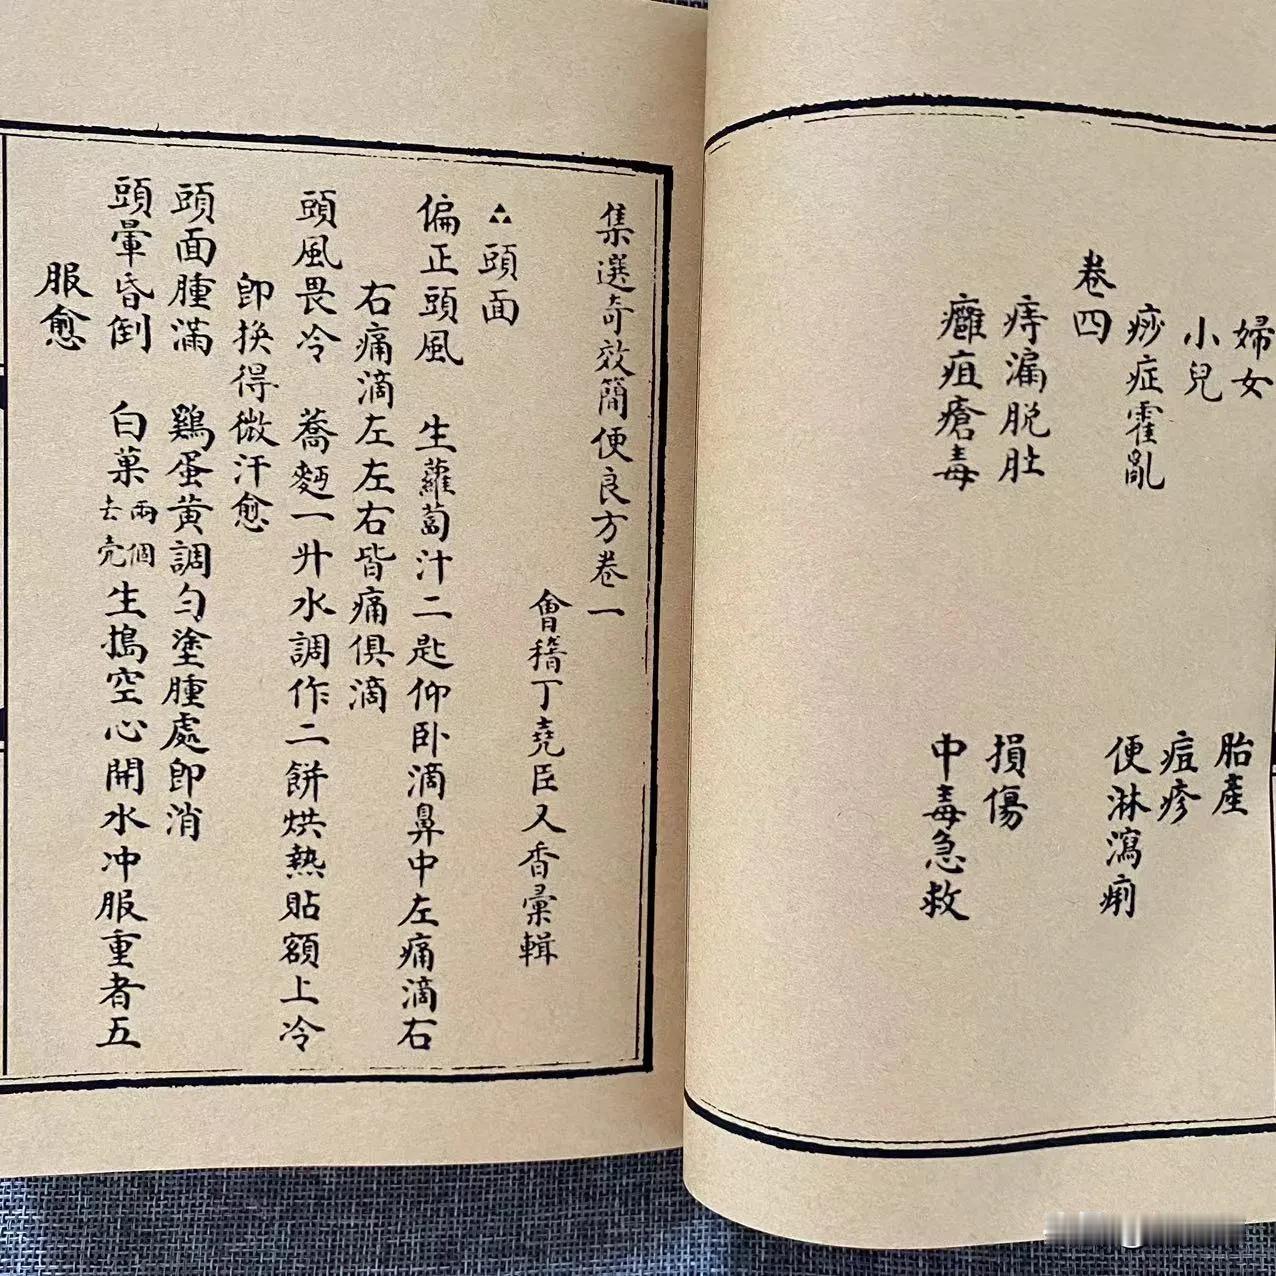 婦女 胎產
小兒 痘疹
痧症霍亂 便淋瀉痢
卷四
痔漏脱肚 損傷
癰疽瘡毒 中毒急救
集選奇效簡便良方卷一
會稽丁堯臣又香彙輯
頭面
偏正頭風 生蘿蔔汁二匙仰卧滴鼻中左痛滴右
右痛滴左左右皆痛俱滴
頭風畏冷 蕎麫一升水調作二餅烘熱貼額上冷
卽換得微汗愈
頭面腫滿 鷄蛋黃調勻塗腫處卽消
頭暈昏倒 白菓兩個去壳生搗空心開水冲服重者五
服愈